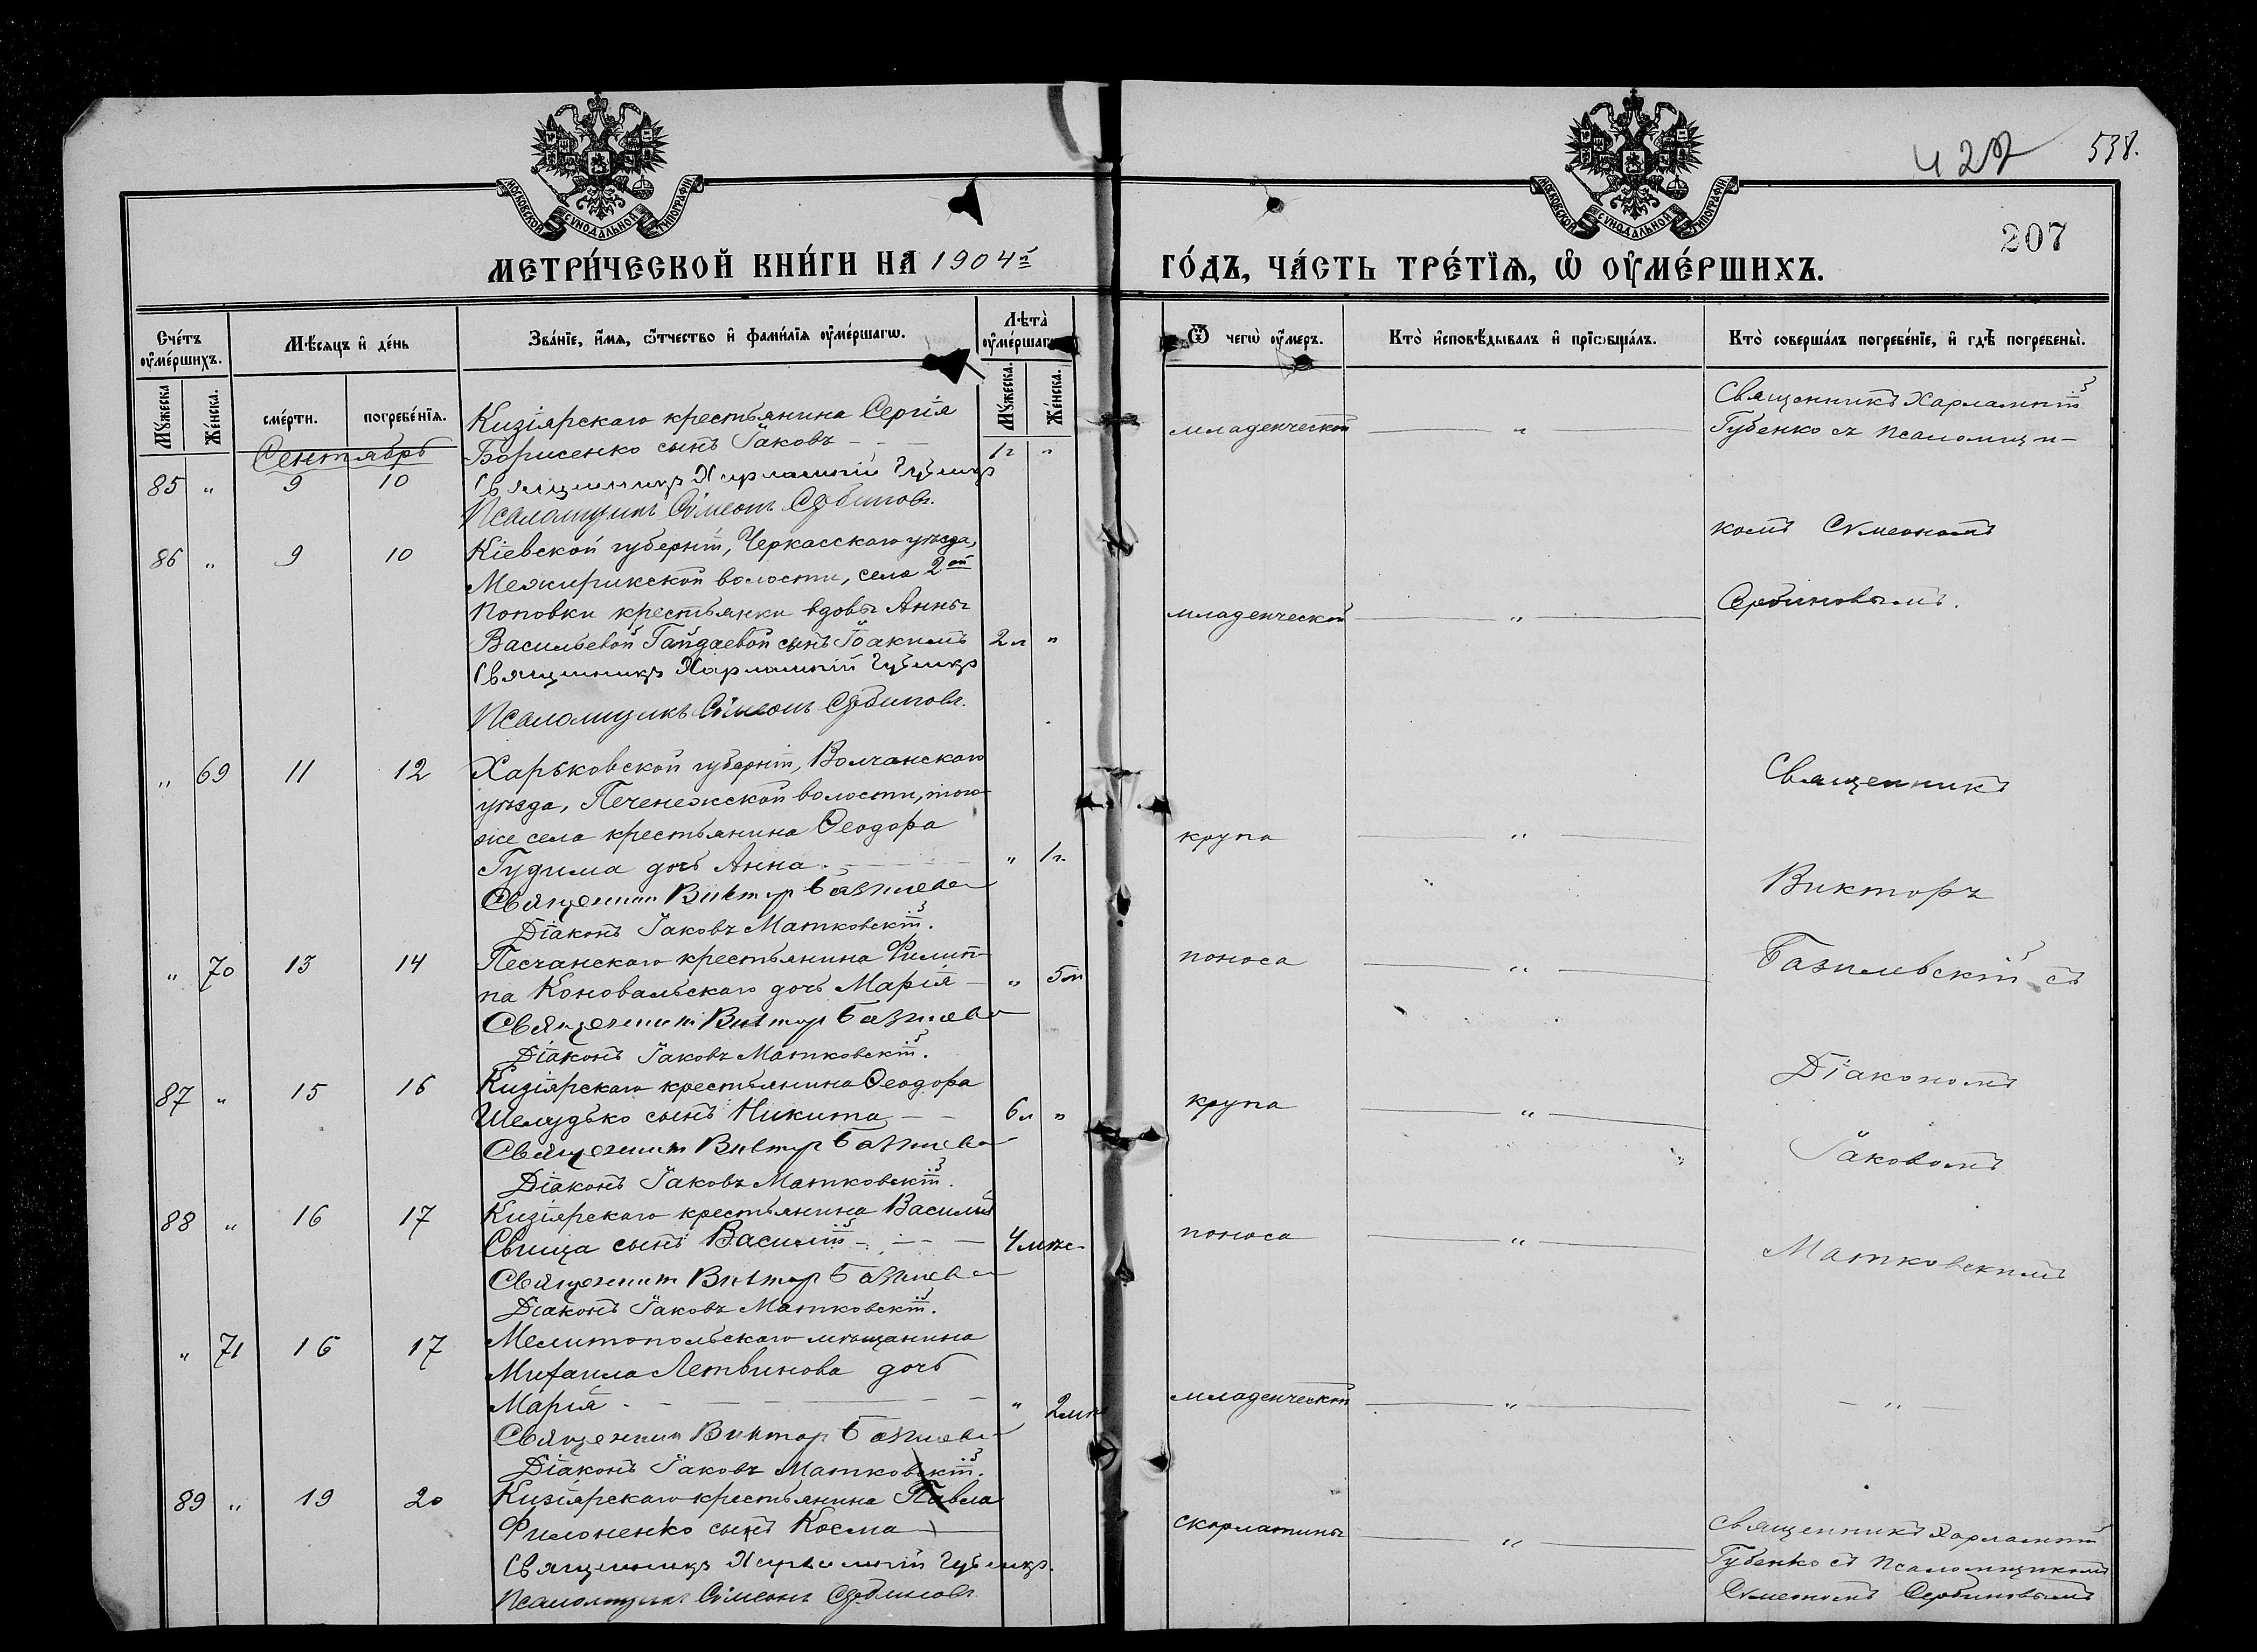 МОСКОВСКОЙ СѴНОДАЛЬНОЙ ТИПОГРАФІИ
МОСКОВСКОЙ СѴНОДАЛЬНОЙ ТИПОГРАФІИ
422
538.
207
МЕТРИ́ЧЕСКОЙ КНИ́ГИ НА 1904й
ГО́ДЪ, ЧА́СТЬ ТРЕ́ТІѦ, Ѽ ОУ҆МЕ́РШИХЪ.
Сче́тъ оу҆ме́ршихъ.
Мѣ́сяцъ и҆ де́нь
Зва́ніе, и҆́мя, ѻ҆́тчество и҆ фами́лія оу҆ме́ршагѡ.
Лѣта̀ оу҆ме́ршагѡ
Ѿ чегѡ̀ оу҆́меръ.
Кто̀ и҆сповѣ́дывалъ и҆ прїѡбща́лъ.
Кто̀ соверша́лъ погребе́ніе, и҆ гдѣ̀ погребены̀.
Мꙋ́жеска
Же́нска.
сме́рти.
погребе́нїя.
Мꙋ́жеска.
Же́нска.
Сентябрь
85 " 9 10
Кизіярскаго крестьянина Сергія
Борисенко сынъ Іаковъ - - - 1г "
Священникъ Харлампій Губенко
Псаломщикъ Сѵмеонъ Сербиновъ.
младенческой — " —
Священникъ Харлампій
Губенко съ псаломщи-
комъ Сѵмеономъ
Сербиновымъ.
86 " 9 10
Кіевской губерніи, Черкасскаго уѣзда,
Межирикской волости, села 2ой
Поповки крестьянки вдовы Анны
Васильевой Гайдаевой сынъ Іоакимъ 2л "
Священникъ Харлампій Губенко
Псаломщикъ Сѵмеонъ Сербиновъ.
младенческой — " —
" 69 11 12
Харьковской губерніи, Волчанскаго
уѣзда, Печенежской волости, того-
же села крестьянина Ѳеодора
Гудима дочь Анна. - - - " 1г.
Священник Виктор Базилевс
Діаконъ Іаковъ Матковскій.
крупа — " —
Священникъ
Викторъ
Базилевскій съ
Діакономъ
Іаковомъ
Матковскимъ
" 70 13 14
Песчанскаго крестьянина Филип-
па Коновальскаго дочь Марія - " 5м
Священник Виктор Базилевс
Діаконъ Іаковъ Матковскій.
поноса — " —
87 " 15 16
Кизіярскаго крестьянина Ѳеодора
Шелудько сынъ Никита - - 6л "
Священник Виктор Базилевс
Діаконъ Іаковъ Матковскій.
крупа — " —
88 " 16 17
Кизіярскаго крестьянина Василія
Свища сынъ Василій - - - 4мѣс-
Священник Виктор Базилевс
Діаконъ Іаковъ Матковскій.
поноса — " —
" 71 16 17
Мелитопольскаго мѣщанина
Михаила Летвинова дочь
Марія - - - - " 2мѣс
Священник Виктор Базилевс
Діаконъ Іаковъ Матковскій.
младенческой — " —
- " -
89 " 19 20
Кизіярскаго крестьянина Павла
Филоненко сынъ Косма —
Священникъ Харлампій Губенко.
Псаломщикъ Сѵмеонъ Сербиновъ
скарлатины — " —
Священникъ Харлампій
Губенко съ псаломщикомъ
Сѵмеономъ Сербиновымъ